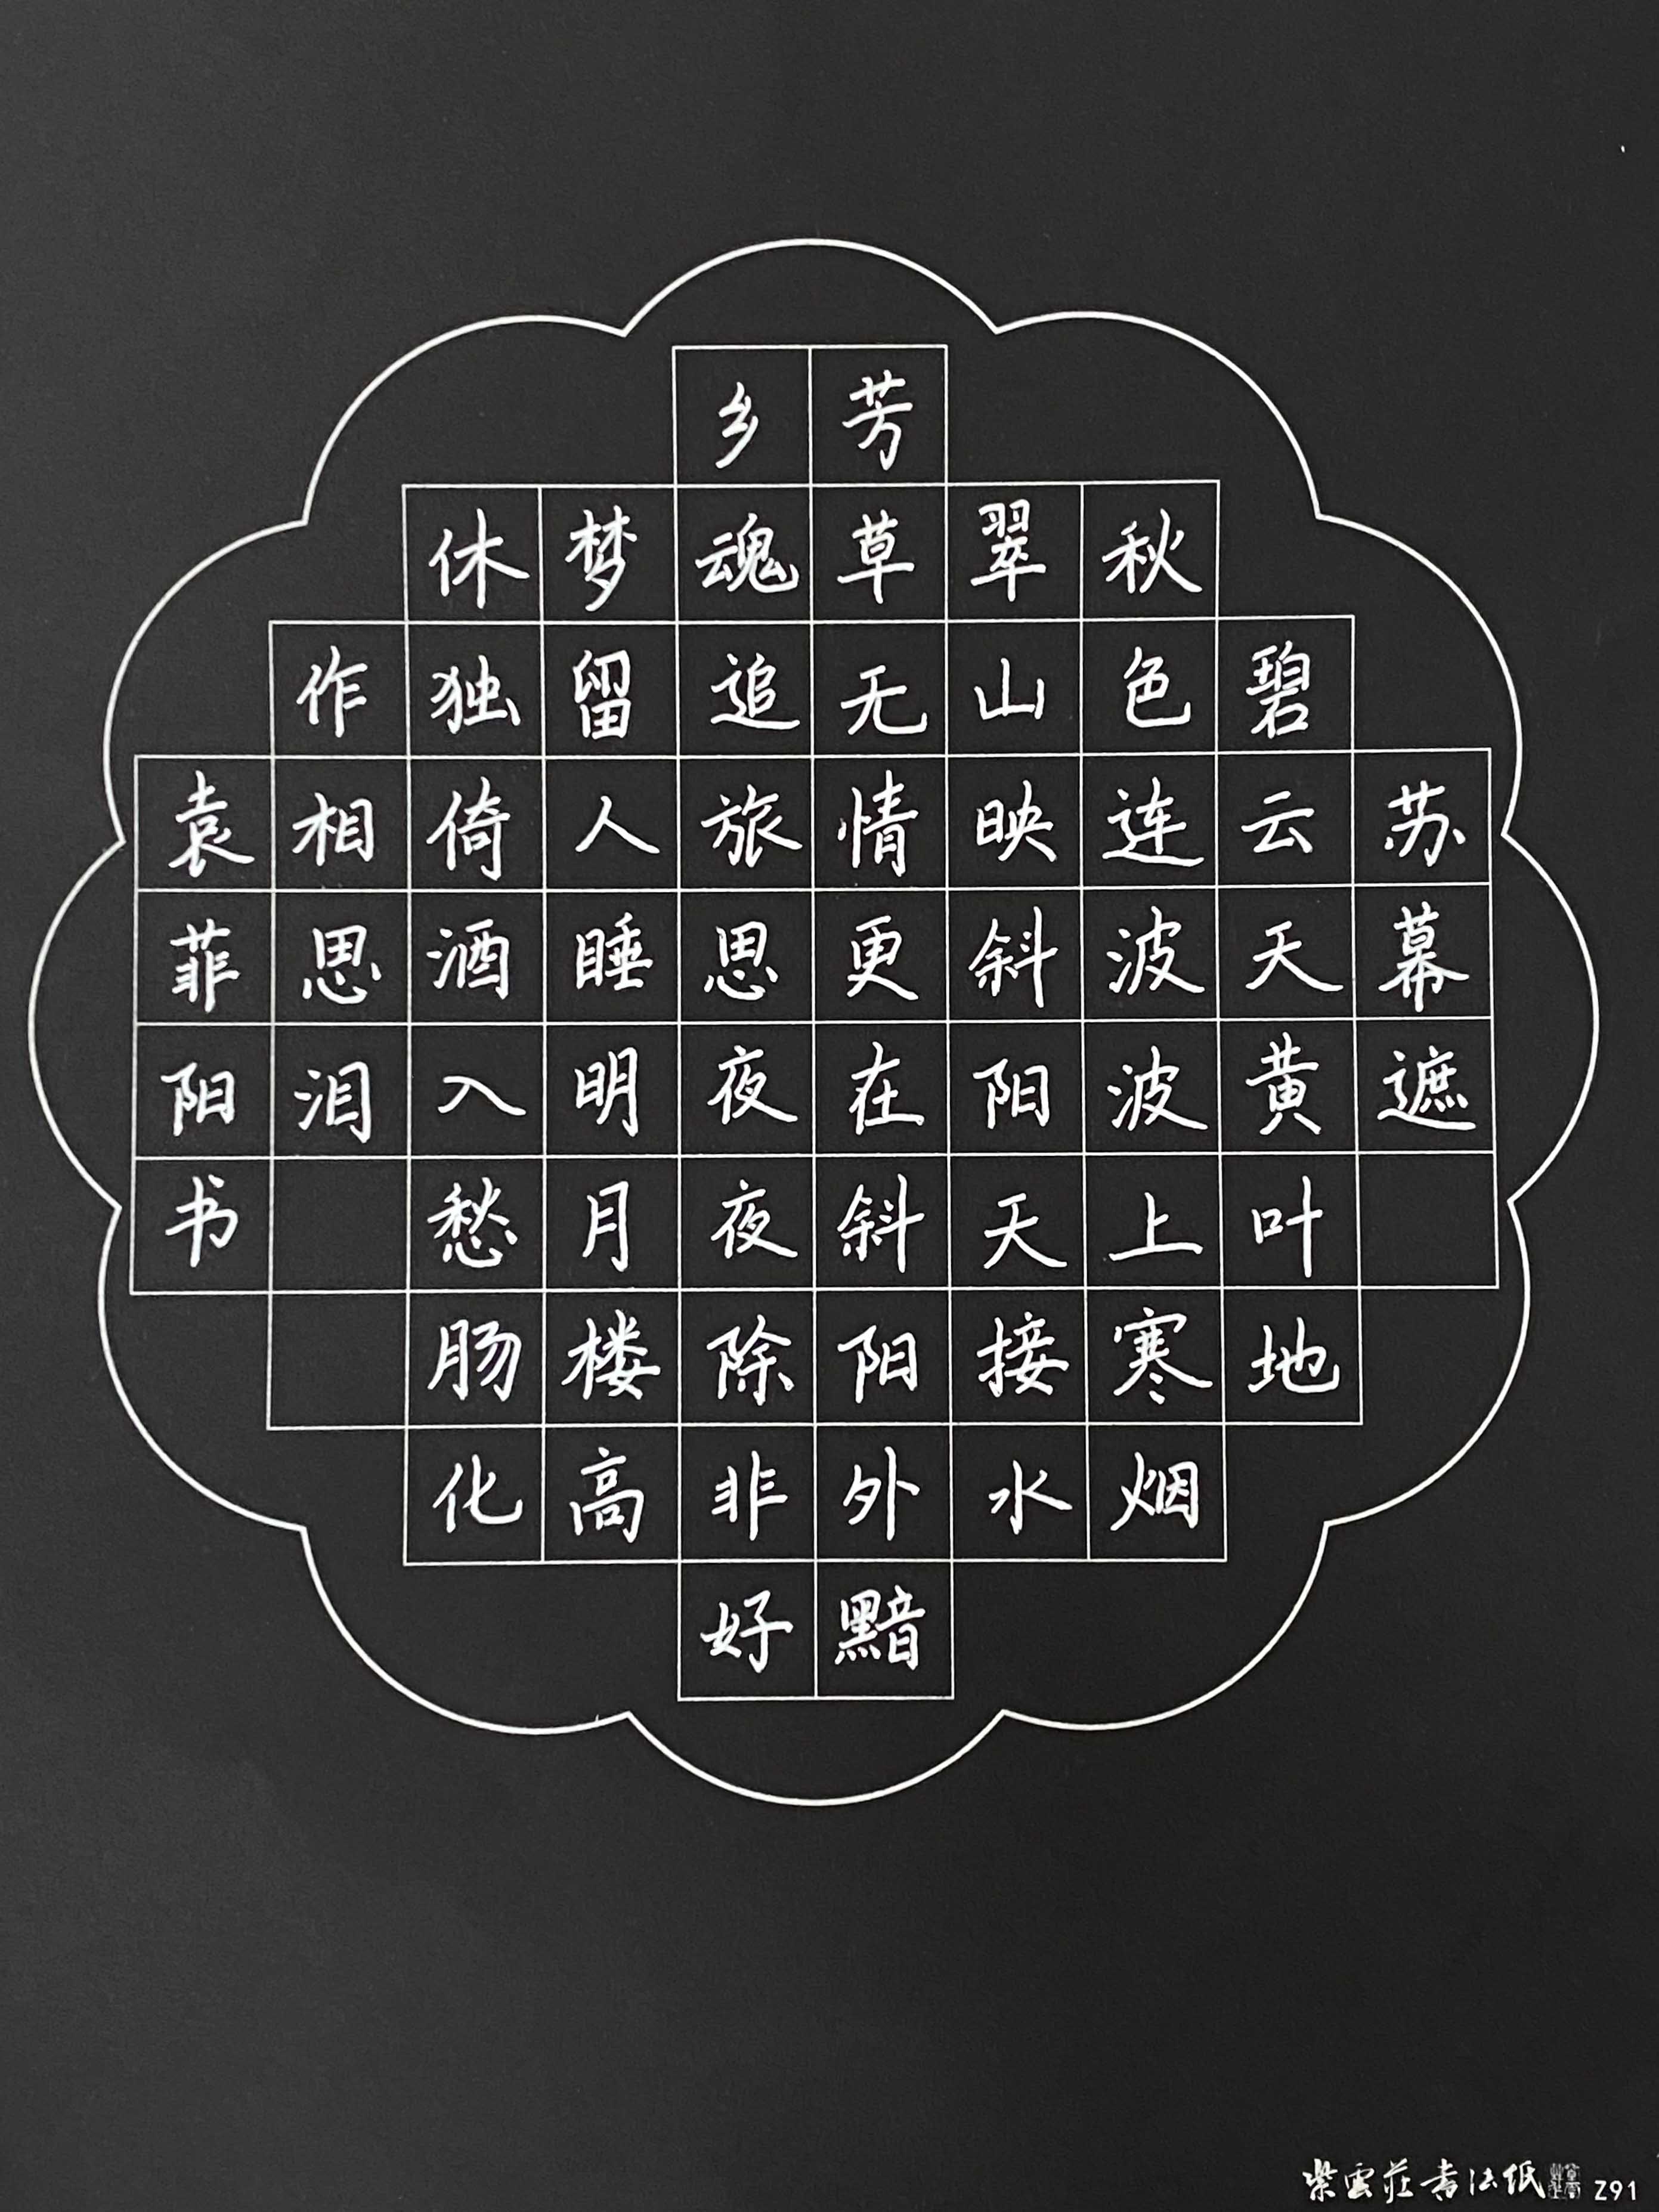 苏幕遮
碧云天黄叶地
秋色连波波上寒烟
翠山映斜阳天接水
芳草无情更在斜阳外黯
乡魂追旅思夜夜除非好
梦留人睡明月楼高
休独倚酒入愁肠化
作相思泪
袁菲阳书
紫雲莊書法纸 Z91